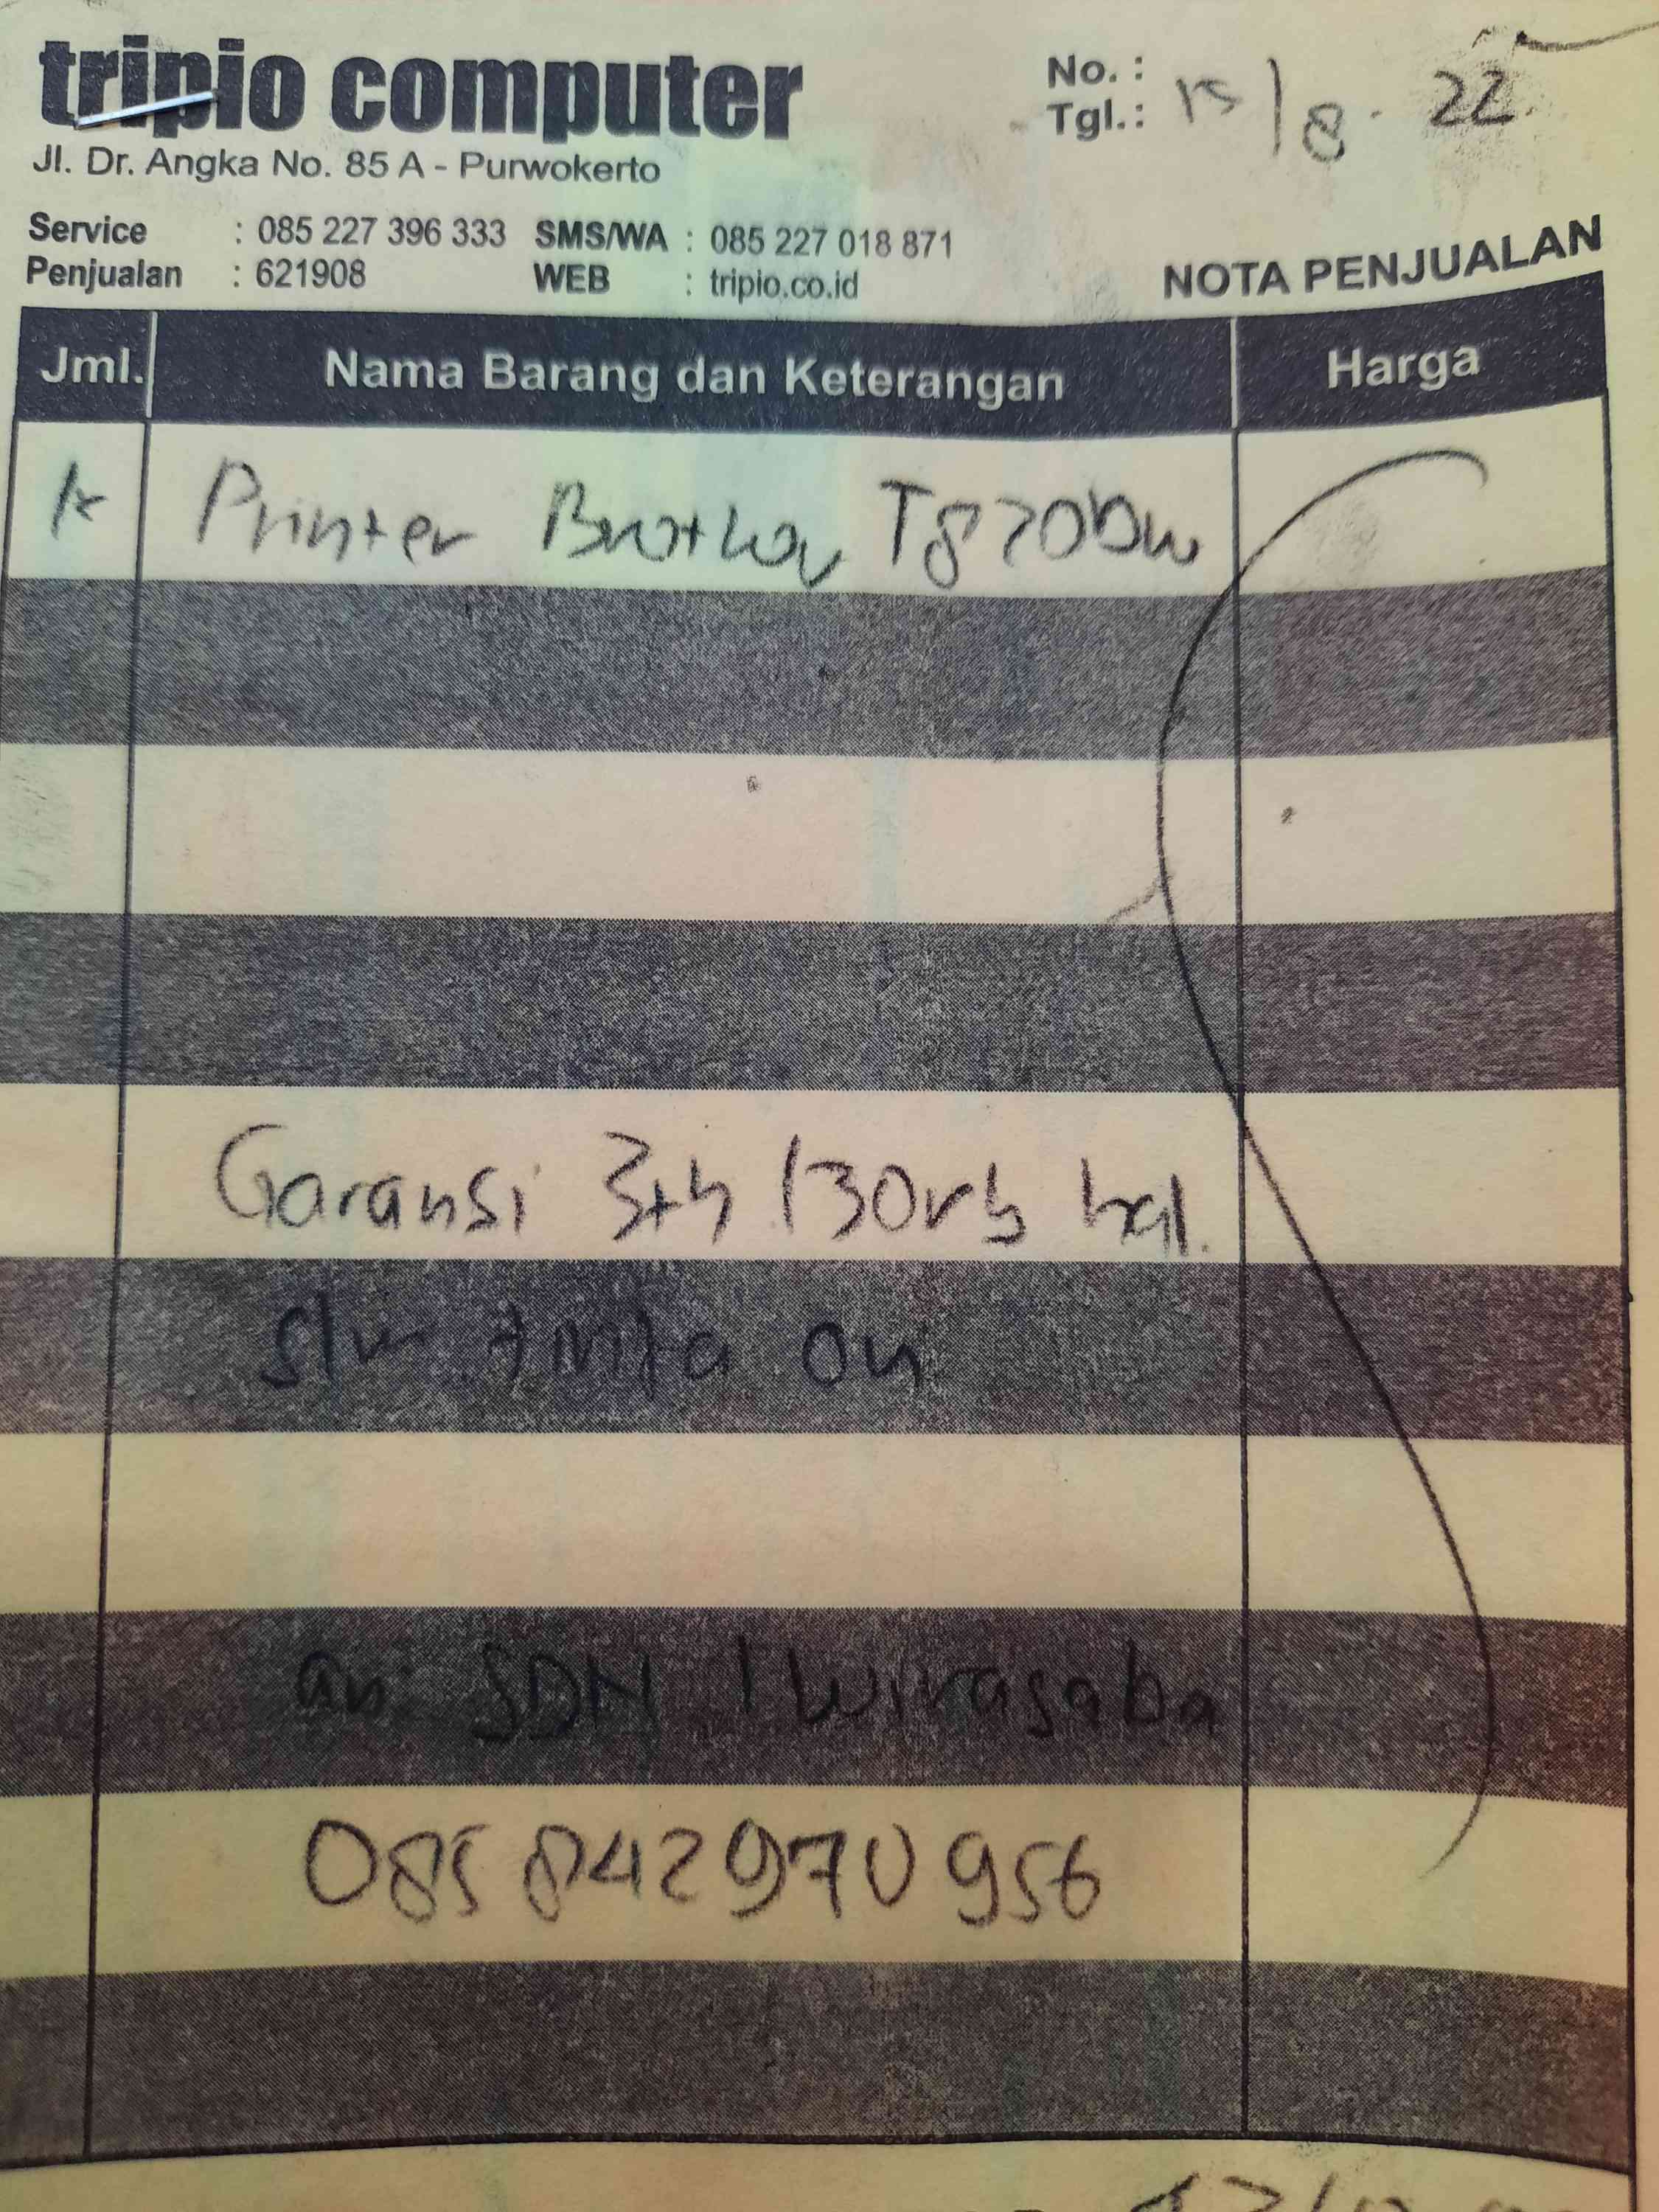 tripio computer
Jl. Dr. Angka No. 85 A - Purwokerto
No. :
Tgl. : 15/8 - 22
Service : 085 227 396 333 SMS/WA : 085 227 018 871
Penjualan : 621908 WEB : tripio.co.id
NOTA PENJUALAN
Jml. Nama Barang dan Keterangan Harga
Printer Brother T820Dw
Garansi 3th /30rb hal.
tinta ori
an. SDN 1 Wirasaba
085842970956